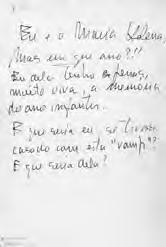 Eu e a Maria Helena,
mas em que ano?!!
Eu dela tenho apenas,
muito viva, a memória
do ano infantil.
E que seria eu se tivesse
casado com esta "vamp"?
E que seria dela?